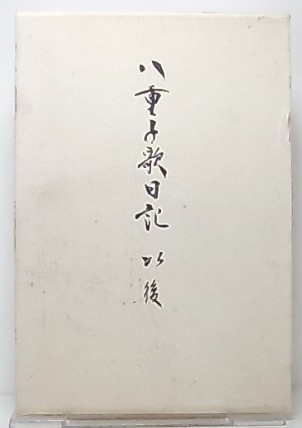 八重子歌日記 以後